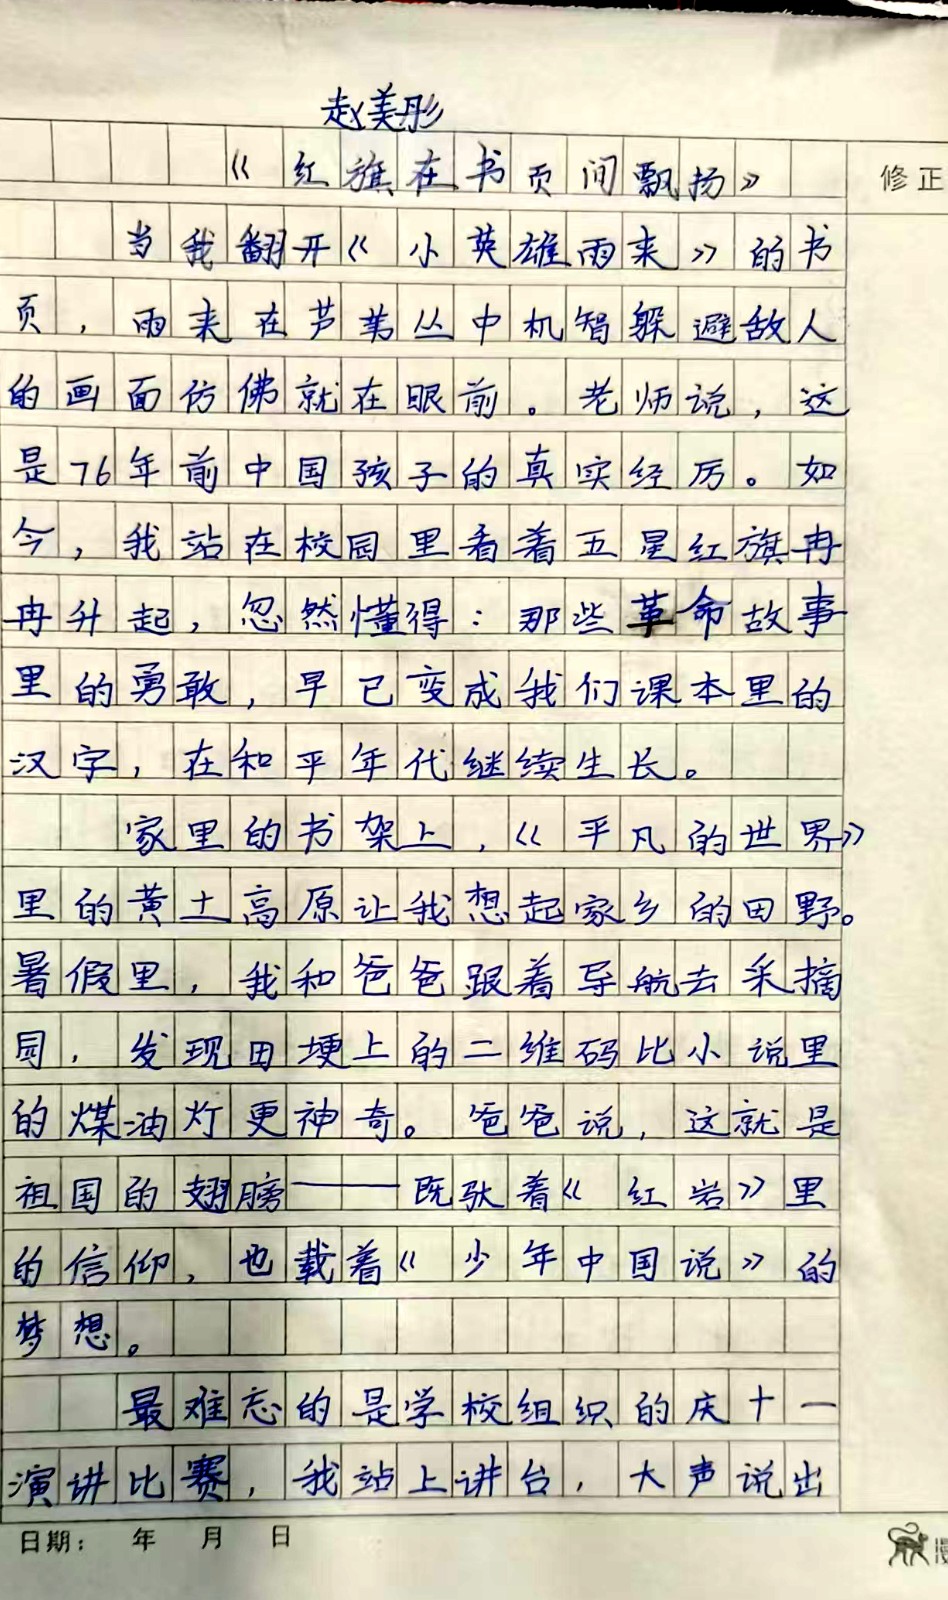 赵美彤
《红旗在书页间飘扬》
修正
当我翻开《小英雄雨来》的书
页，雨来在芦苇丛中机智躲避敌人
的画面仿佛就在眼前。老师说，这
是76年前中国孩子的真实经历。如
今，我站在校园里看着五星红旗冉
冉升起，忽然懂得：那些革命故事
里的勇敢，早已变成我们课本里的
汉字，在和平年代继续生长。
家里的书架上，《平凡的世界》
里的黄土高原让我想起家乡的田野。
暑假里，我和爸爸跟着导航去采摘
园，发现田埂上的二维码比小说里
的煤油灯更神奇。爸爸说，这就是
祖国的翅膀——既驮着《红岩》里
的信仰，也载着《少年中国说》的
梦想。
最难忘的是学校组织的庆十一
演讲比赛，我站上讲台，大声说出
日期： 年 月 日